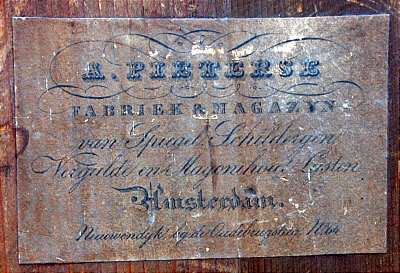 A. PIETERSE
FABRIEK & MAGAZYN
van Spiegel, Schilderyen
Vergulde en Magonihout Lysten
Amsterdam.
Nieuwendyk, by de Oudebrugsteeg, N° 64